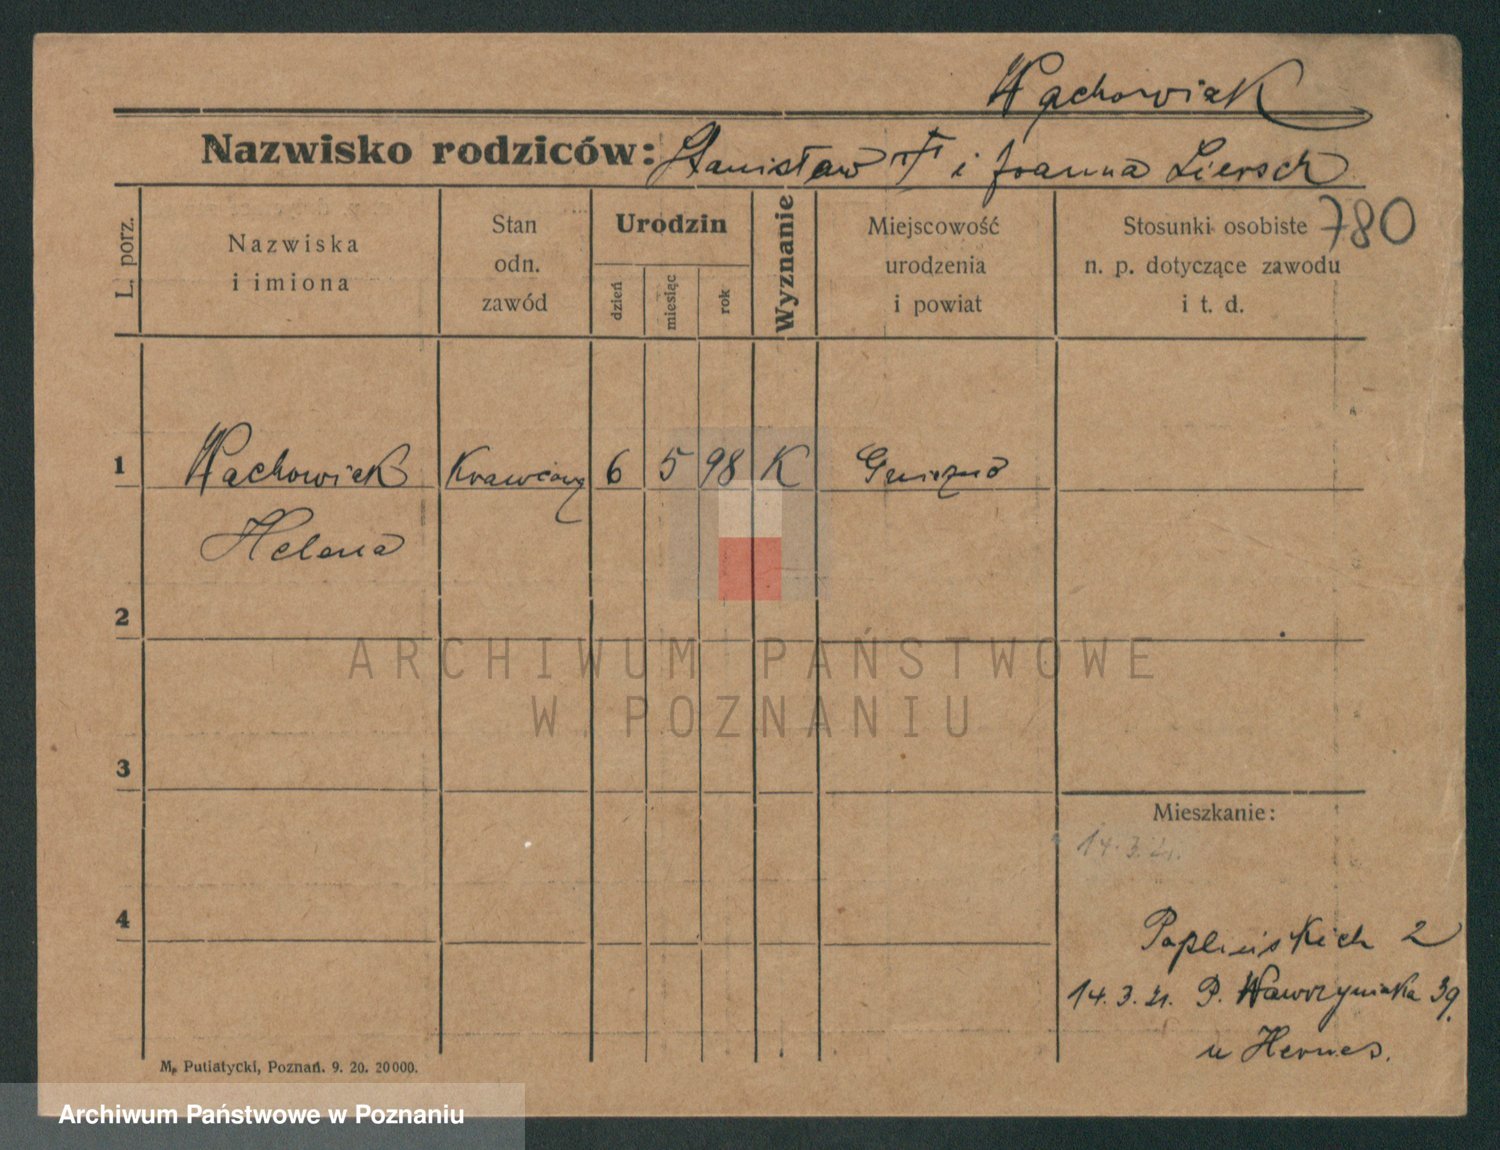 Wachowiak
Nazwisko rodziców: Stanisław † i Joanna Liersch
780
L. porz.
Nazwiska
i imiona
Stan
odn.
zawód
Urodzin
dzień
miesiąc
rok
Wyznanie
Miejscowość
urodzenia
i powiat
Stosunki osobiste
n. p. dotyczące zawodu
i t. d.
1 Wachowiak Krawcowa 6 5 98 K Gniezno
Helena
2
ARCHIWUM PAŃSTWOWE
W POZNANIU
3
Mieszkanie:
14.3.21.
4
Poplińskich 2
14.3.21. P. Wawrzyniaka 39.
u Hermes.
M. Putiatycki, Poznań. 9. 20. 20000.
Archiwum Państwowe w Poznaniu